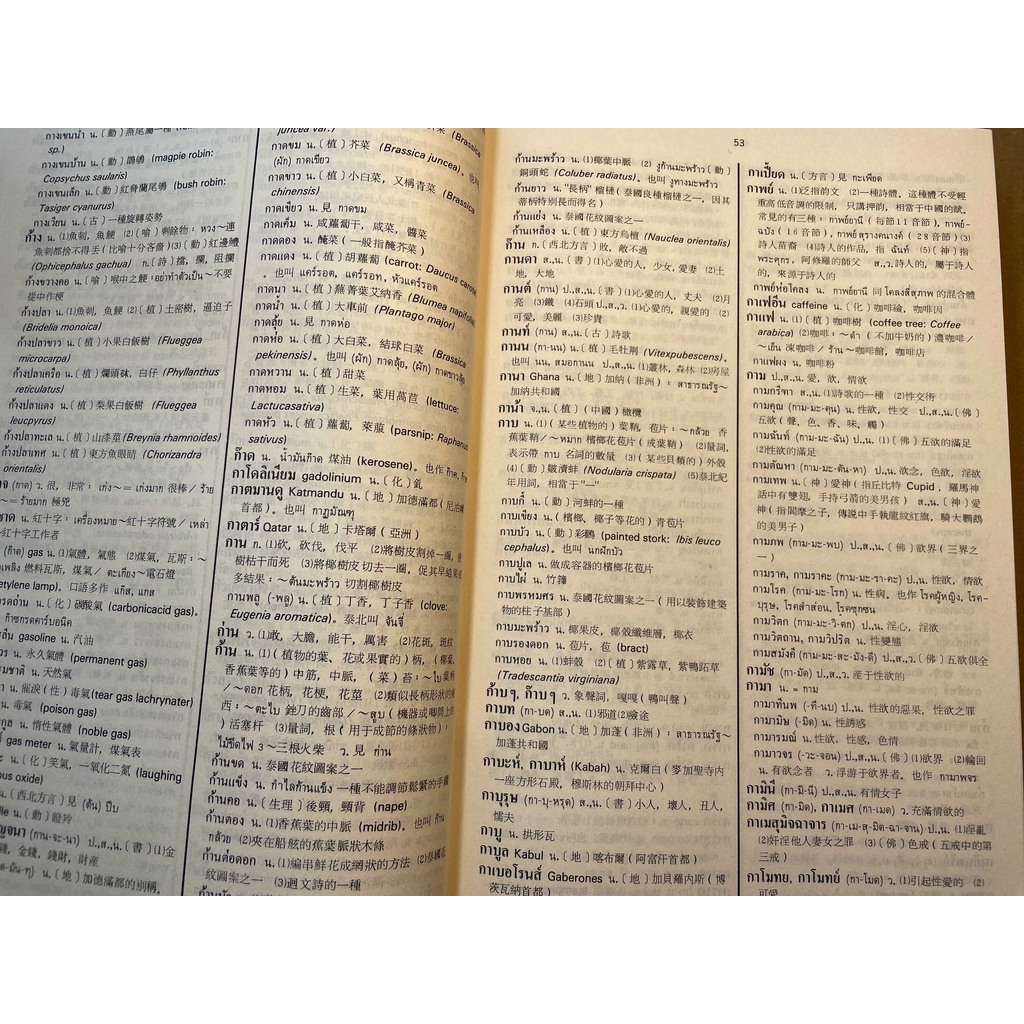 sp.)
ก้างเขนบ้าน น.〔動〕鵲鴝 (magpie robin:
Copsychus saularis)
ก้างเขนเล็ก น.〔動〕紅脅藍尾鴝 (bush robin:
Tasiger cyanurus)
กางเวียน น.〔古〕一種旋轉姿勢
ก้าง น. (1)魚刺, 魚鯁 (2)〔喻〕剩餘物：หวง～連
魚刺都捨不得丟〔比喻十分吝嗇〕(3)〔動〕紅邊鱧
(Ophicephalus gachua) ก.〔詩〕擋, 攔, 阻攔
ก้างขวางคอ น.〔喻〕喉中之鯁：อย่าทำตัวเป็น～不要
從中作梗
ก้างปลา น. (1)魚刺, 魚鯁 (2)〔植〕土密樹, 逼迫子
(Bridelia monoica)
ก้างปลาขาว น.〔植〕小果白飯樹 (Flueggea
microcarpa)
ก้างปลาเครือ น.〔植〕爛頭砵, 白仔 (Phyllanthus
reticulatus)
ก้างปลาแดง น.〔植〕梨果白飯樹 (Flueggea
leucpyrus)
ก้างปลาทะเล น.〔植〕山漆莖 (Breynia rhamnoides)
ก้างปลาเทศ น.〔植〕東方魚眼睛 (Chorizandra
orientalis)
น. 紅十字：เครื่องหมาย～紅十字符號／เหล่า
～紅十字工作者
(ก๊าด) น. (1)氣體, 氣態 (2)煤氣, 瓦斯：～
燃料瓦斯, 煤氣／ตะเกียง～電石燈
(acetylene lamp). 口語多作 แก๊ส, แกส
น.〔化〕碳酸氣 (carbonicacid gas).
ก๊าซกรดคาร์บอนิค
gasoline น. 汽油
น. 永久氣體 (permanent gas)
น. 天然氣
น. 催淚〔性〕毒氣(tear gas lachrynater)
น. 毒氣 (poison gas)
น. 惰性氣體 (noble gas)
gas meter น. 氣量計, 煤氣表
น.〔化〕笑氣, 一氧化二氮 (laughing
น.〔西北方言〕見 (ดัน) ปีบ
(กาน-จะ-นา) ป.,ส.,น.〔書〕(1)金
錢, 金錢, 錢財, 財產
น.〔地〕加德滿都的別稱,
juncea var.)
กาดขม น.〔植〕芥菜 (Brassica juncea). 也叫
(ผัก) กาดเขียว
กาดขาว น.〔植〕小白菜, 又稱青菜 (Brassica
chinensis)
กาดเขียว น. 見 กาดขม
กาดเค็ม น. 咸蘿蔔干, 咸菜, 醬菜
กาดดอง น. 醃菜（一般指醃芥菜）
กาดแดง น.〔植〕胡蘿蔔 (carrot: Daucus carota)
. 也叫 แคร์รอต, แคร์รอท, หัวแครร์อต
กาดนา น.〔植〕蕪菁葉艾納香 (Blumea napifolia)
กาดน้ำ น.〔植〕大車前 (Plantago major)
กาดลุ้ย น. 見 กาดห่อ
กาดห่อ น.〔植〕大白菜, 結球白菜 (Brassica
pekinensis). 也叫 (ผัก) กาดลุ้ย, กาดขาวลุ้ย
กาดหวาน น.〔植〕甜菜
กาดหอม น.〔植〕生菜, 葉用萵苣 (lettuce:
Lactucasativa)
กาดหัว น.〔植〕蘿蔔, 萊菔 (parsnip: Raphanus
sativus)
ก๊าด น. น้ำมันก๊าด 煤油 (kerosene). 也作
กาโดลิเนียม gadolinium น.〔化〕釓
กาตมานดู Katmandu น.〔地〕加德滿都（尼泊爾
首都）. 也叫 กาฏมัณฑุ
กาตาร์ Qatar น.〔地〕卡塔爾（亞洲）
กาน ก. (1)砍, 砍伐, 伐平 (2)將樹皮割掉一圈, 使
樹枯干而死 (3)將椰樹皮切去一圈, 促其早結果或
多結果：～ต้นมะพร้าว 切割椰樹皮
กานพลู (-พลู) น.〔植〕丁香, 丁子香 (clove:
Eugenia aromatica). 泰北叫 จันจี่
ก่าน ว. (1)敢, 大膽, 能干, 厲害 (2)花斑, 斑紋
ก้าน น. (1)（植物的葉、花或果實的）柄,（椰葉,
香蕉葉等的）中筋, 中脈,（菜）苔：～ใบ 葉柄
／～ดอก 花柄, 花梗, 花莖 (2)類似長柄形狀的東
西：～ตะไบ 銼刀的齒部／～สูบ（機器或唧筒上的
）活塞杆 (3)量詞, 根（用于成節的條狀物）:
ไม้ขีดไฟ 3 ～三根火柴 ว. 見 ก่าน
ก้านขด น. 泰國花紋圖案之一
ก้านแข็ง น. กำไลก้านแข็ง 一種不能調節鬆緊的手鐲
ก้านคอ น.〔生理〕後頸, 頸背 (nape)
ก้านตอง น. (1)香蕉葉的中脈 (midrib). 也叫 ก้าน
กล้วย (2)夾在船舷的蕉葉脈狀木條
ก้านต่อดอก น. (1)編串鮮花成網狀的方法 (2)泰國花
紋圖案之一 (3)迴文詩的一種
53
ก้านมะพร้าว น. (1)椰葉中脈 (2) งูก้านมะพร้าว〔動〕
銅頭蛇 (Coluber radiatus). 也叫 งูทางมะพร้าว
ก้านยาว น. "長柄" 榴槤（泰國良種榴槤之一, 因其
蒂柄特別長而得名）
ก้านแย่ง น. 泰國花紋圖案之一
ก้านเหลือง น.〔植〕東方烏檀 (Nauclea orientalis)
ก๊าน ก.〔西北方言〕敗, 敵不過
กานดา น.,ส.〔書〕(1)心愛的人, 少女, 愛妻 (2)土
地, 大地
กานต์ (กาน) ป.,ส.,น.〔書〕(1)心愛的人, 丈夫 (2)月
亮 (3)鐵 (4)石頭 ป.,ส.,ว. (1)心愛的, 親愛的 (2)
可愛, 美麗 (3)珍貴
กานท์ (กาน) ส.,น.〔古〕詩歌
กานน (กา-นน) น.〔植〕毛牡荊 (Vitexpubescens). 也
也叫 นน, สมอกานน ป.,ส.,น. (1)叢林, 森林 (2)房屋
กานา Ghana น.〔地〕加納（非洲）：สาธารณรัฐ～
加納共和國
กาน้ำ จ.,น.〔植〕（中國）橄欖
กาบ น. (1)（某些植物的）葉鞘, 苞片：～กล้วย 香
蕉葉鞘／～หมาก 檳榔花苞片（或葉鞘）(2)量詞,
表示帶 กาบ 名詞的數量 (3)（某些貝類的）外殼
(4)〔動〕皺瀆蚌 (Nodularia crispata) (5)泰北紀
年用詞, 相當于 "一"
กาบกี้ น.〔動〕河蚌的一種
กาบเขียง น.（檳榔、椰子等花的）青苞片
กาบบัว น.〔動〕彩鸛 (painted stork: Ibis leuco
cephalus). 也叫 นกฝักบัว
กาบปูเล น. 做成容器的檳榔花苞片
กาบไผ่ น. 竹籜
กาบพรหมศร น. 泰國花紋圖案之一（用以裝飾建築
物的柱子基部）
กาบมะพร้าว น. 椰果皮, 椰殼纖維層, 椰衣
กาบรองดอก น. 苞片, 苞 (bract)
กาบหอย น. (1)蚌殼 (2)〔植〕紫露草, 紫鴨跖草
(Tradescantia virginiana)
ก้าบ ๆ, ก๊าบ ๆ ว. 象聲詞, 嘎嘎（鴨叫聲）
กาบท (กา-บด) ป.,ส.,น. (1)邪道 (2)險途
กาบอง Gabon น.〔地〕加蓬（非洲）：สาธารณรัฐ～
加蓬共和國
กาบะห์, กาบาห์ (Kabah) น. 克爾白（麥加聖寺内
一座方形石殿, 穆斯林的朝拜中心）
กาบุรุษ (กา-บุ-หรุด) ส.,น.〔書〕小人, 壞人, 丑人,
懦夫
กาบู น. 拱形瓦
กาบูล Kabul น.〔地〕喀布爾（阿富汗首都）
กาเบอโรนส์ Gaberones น.〔地〕加貝羅内斯（博
茨瓦納首都）
กาเปี๊ยด น.〔方言〕見 กะเพียด
กาพย์ น. (1)泛指的文 (2)一種詩體, 這種體不受輕
重高低音調的限制, 只講押韵, 相當于中國的賦.
常見的有三種：กาพย์ยานี（每節11音節）, กาพย์-
ฉบัง（16音節）, กาพย์สุรางคนางค์（28音節）(3)
詩人苗裔 (4)詩人的作品, 指 ฉันท์ (5)〔神〕指
พระศุกร, 阿修羅的師父 ส.,ว. 詩人的, 屬于詩人
的, 來源于詩人的
กาพย์ห่อโคลง น. กาพย์ยานี 同 โคลงสี่สุภาพ 的混合體
กาเฟอีน caffeine น.〔化〕咖啡鹼, 咖啡因
กาแฟ น. (1)〔植〕咖啡樹 (coffee tree: Coffee
arabica) (2)咖啡：～ดำ（不加牛奶的）濃咖啡／
～เย็น 凍咖啡／ร้าน～咖啡館, 咖啡店
กาแฟผง น. 咖啡粉
กาม ป.,ส.,น. 愛, 欲, 情欲
กามกรีฑา ส.,น. (1)詩歌的一種 (2)性交術
กามคุณ (กาม-มะ-คุน) น. 性欲, 性交 ป.,ส.,น.〔佛〕
五欲（聲、色、香、味、觸）
กามฉันท์ (กาม-มะ-ฉัน) ป.,น. (1)〔佛〕五欲的滿足
(2)性欲的滿足
กามตัณหา (กาม-มะ-ตัน-หา) ป.,น. 欲念, 色欲, 淫欲
กามเทพ น. (1)〔神〕愛神（指丘比特 Cupid, 羅馬神
話中有雙翅, 手持弓箭的美男孩）ส.,น.〔神〕愛
神（指閻摩之子, 傳説中手執龍紋紅旗, 騎大鸚鵡
的美男子）
กามภพ (กาม-มะ-พบ) ป.,ส.,น.〔佛〕欲界（三界之
一）
กามราค, กามราคะ (กาม-มะ-รา-คะ) ป., น. 性欲, 情欲
กามโรค (กาม-มะ-โรก) น. 性病. 也作 โรคผู้หญิง, โรค-
บุรุษ, โรคสำส่อน, โรคซุกซน
กามวิตก (กาม-มะ-วิ-ตก) ป.,น. 淫心, 淫欲
กามวิตถาน, กามวิปริต น. 性變態
กามสมังคี (กาม-มะ-สะ-มัง-คี) ป.,ส.,ว.〔佛〕五欲俱全
กามัช (กา-มัด) ป.,ส.,ว. 産于性欲的
กามา น. = กาม
กามาทีนพ (-ที-นบ) ป.,น. 性欲的惡果, 性欲之罪
กามามิษ (-มิด) น. 性誘惑
กามารมณ์ น. 性欲, 性感, 色情
กามาวจร (-วะ-จอน) ป.,ส.,น.〔佛〕(1)欲界 (2)輪回
น. 有欲念者 ว. 浮游于欲界者. 也作 กามาพจร
กามินี (กา-มิ-นี) ป.,ส.,น. 有情女子
กามิศ (กา-มิด), กาเมศ (กา-เมด) ว. 充滿情欲的
กาเมสุมิจฉาจาร (กา-เม-สุ-มิด-ฉา-จาน) ป.,น. (1)淫亂
(2)奸淫他人妻女之罪 (3)〔佛〕色戒（五戒中的第
三戒）
กาโมทย, กาโมทย์ (กา-โมด) ว. (1)引起性愛的 (2)
可愛